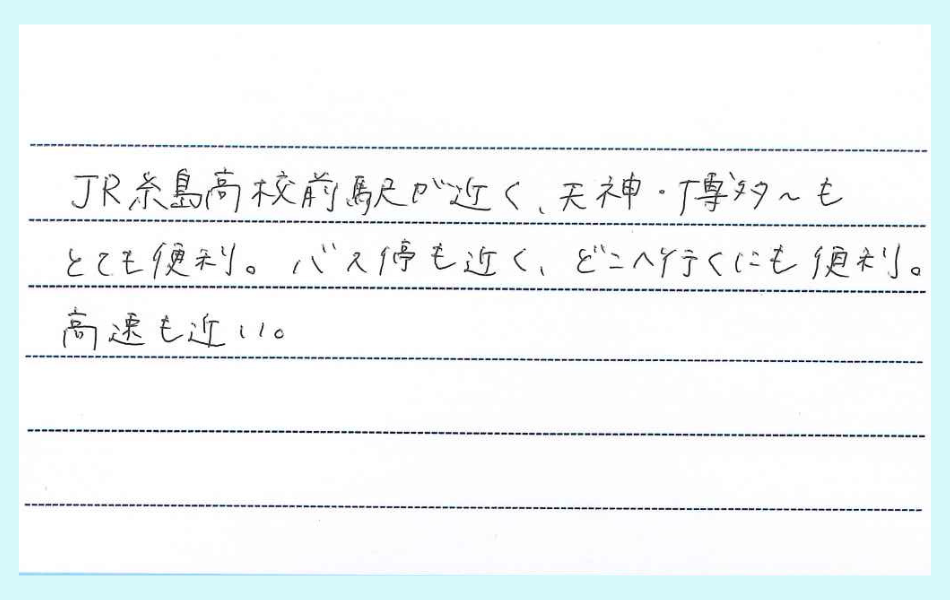 JR糸島高校前駅が近く、天神・博多へも
とても便利。バス停も近く、どこへ行くにも便利。
高速も近い。